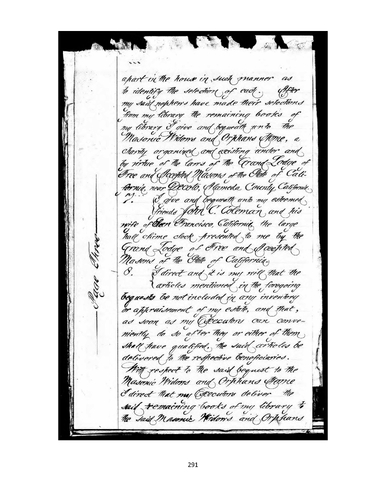 apart in the house in such manner as
to identify the selection of each. After
my said nephews have made their selections
from my library the remaining books of
my library I give and bequeath unto the
Masonic Widows and Orphans Home, a
charity organized and existing under and
by virtue of the laws of the Grand Lodge of
Free and Accepted Masons of the State of Cali-
fornia, near Decoto, Alameda County, California.
7. I give and bequeath unto my esteemed
friends John C. Coleman and his
wife of San Francisco, California, the large
hall chime clock presented to me by the
Grand Lodge of Free and Accepted
Masons of the State of California.
8. I direct and it is my will that the
articles mentioned in the foregoing
bequests be not included in any inventory
or appraisement of my estate, and that,
as soon as my Executors can conve-
niently do so after they or either of them
shall have qualified, the said articles be
delivered to the respective beneficiaries.
With respect to the said bequest to the
Masonic Widows and Orphans Home
I direct that my Executors deliver the
said remaining books of my library to
the said Masonic Widows and Orphans
Page Three
291